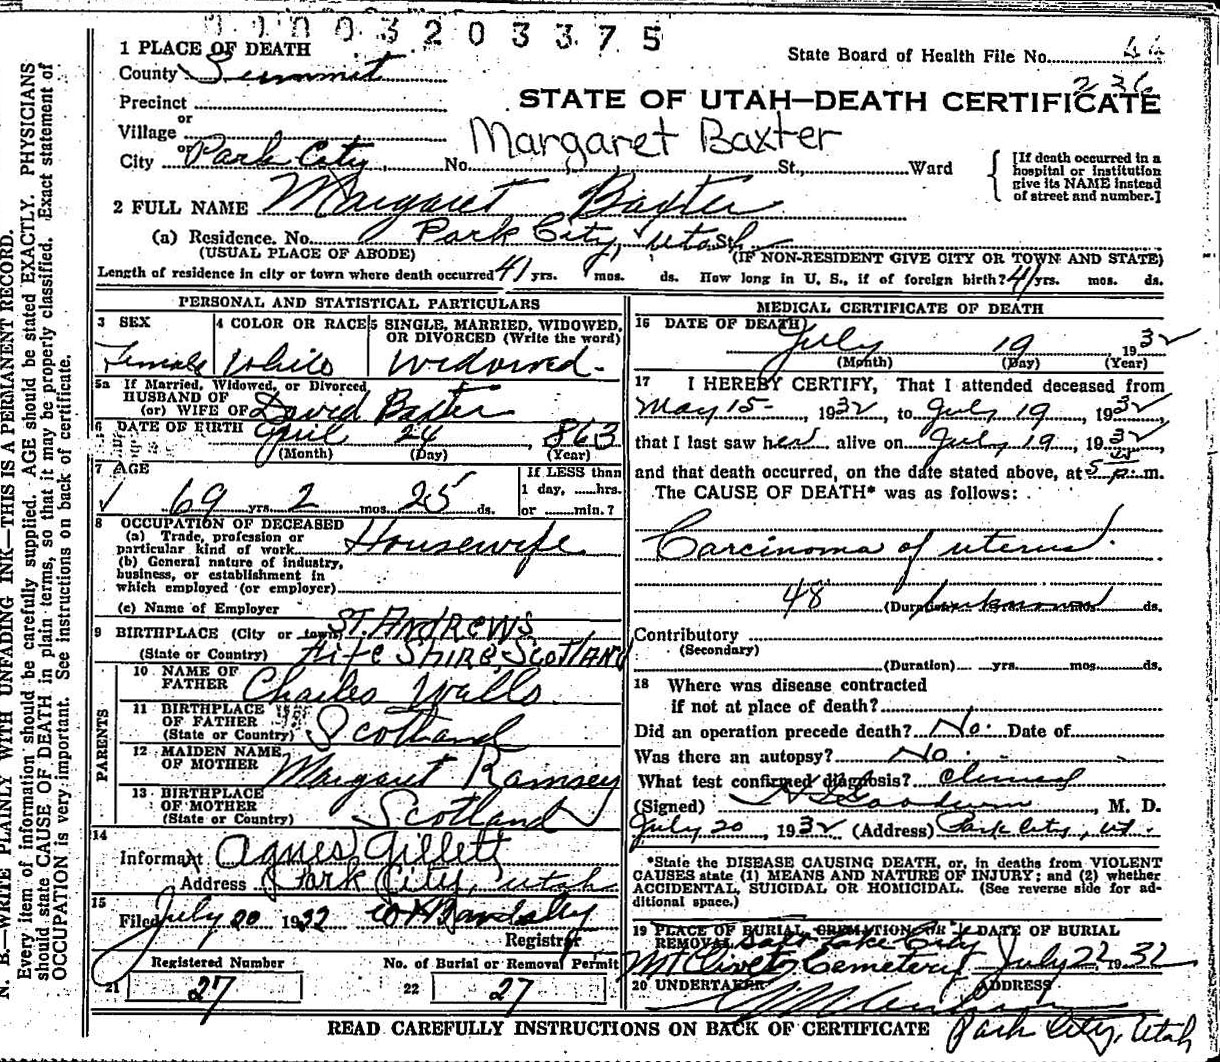 0 0 0 3 2 0 3 3 7 5
1 PLACE OF DEATH
State Board of Health File No. 44
County Summit
236
Precinct
STATE OF UTAH—DEATH CERTIFICATE
or
Village
Margaret Baxter
or
City Park City, No. St., Ward
[If death occurred in a hospital or institution give its NAME instead of street and number.]
2 FULL NAME Margaret Baxter
(a) Residence. No. Park City, Utah St.
(USUAL PLACE OF ABODE) (IF NON-RESIDENT GIVE CITY OR TOWN AND STATE)
Length of residence in city or town where death occurred 41 yrs. mos. ds. How long in U. S., if of foreign birth? 41 yrs. mos. ds.
PERSONAL AND STATISTICAL PARTICULARS
3 SEX 4 COLOR OR RACE 5 SINGLE, MARRIED, WIDOWED, OR DIVORCED (Write the word)
Female White Widowed
5a If Married, Widowed, or Divorced
HUSBAND OF
(or) WIFE OF David Baxter
6 DATE OF BIRTH April 24, 863
(Month) (Day) (Year)
7 AGE
If LESS than 1 day, ......hrs. or ......min.?
69 yrs. 2 mos. 25 ds.
8 OCCUPATION OF DECEASED
(a) Trade, profession or particular kind of work Housewife
(b) General nature of industry, business, or establishment in which employed (or employer)
(c) Name of Employer
9 BIRTHPLACE (City or town) ST. ANDREWS
(State or Country) Fife Shire, Scotland
PARENTS
10 NAME OF FATHER Charles Walls
11 BIRTHPLACE OF FATHER (State or Country) Scotland
12 MAIDEN NAME OF MOTHER Margaret Ramsey
13 BIRTHPLACE OF MOTHER (State or Country) Scotland
14
Informant Agnes Gillett
Address Park City, Utah
15
Filed July 20 1932
Registrar
Registered Number
21 27
No. of Burial or Removal Permit
22 27
MEDICAL CERTIFICATE OF DEATH
16 DATE OF DEATH July 19 1932
(Month) (Day) (Year)
17 I HEREBY CERTIFY, That I attended deceased from
May 15, 1932, to July 19, 1932,
that I last saw her alive on July 19, 1932,
and that death occurred, on the date stated above, at 5 p.m.
The CAUSE OF DEATH* was as follows:
Carcinoma of uterus.
48 (Duration) unknown ds.
Contributory
(Secondary)
(Duration) yrs. mos. ds.
18 Where was disease contracted
if not at place of death?
Did an operation precede death? No. Date of
Was there an autopsy? No.
What test confirmed diagnosis? Clinical
(Signed) Goodwin, M. D.
July 20, 1932 (Address) Park City, Ut.
*State the DISEASE CAUSING DEATH, or, in deaths from VIOLENT
CAUSES state (1) MEANS AND NATURE OF INJURY; and (2) whether
ACCIDENTAL, SUICIDAL OR HOMICIDAL. (See reverse side for additional space.)
19 PLACE OF BURIAL, CREMATION OR REMOVAL DATE OF BURIAL
Salt Lake City
Mt Olivet Cemetery July 22 1932
20 UNDERTAKER ADDRESS
Park City, Utah
READ CAREFULLY INSTRUCTIONS ON BACK OF CERTIFICATE
N. B.—WRITE PLAINLY WITH UNFADING INK—THIS IS A PERMANENT RECORD.
Every item of information should be carefully supplied. AGE should be stated EXACTLY. PHYSICIANS
should state CAUSE OF DEATH in plain terms, so that it may be properly classified. Exact statement of
OCCUPATION is very important. See instructions on back of certificate.